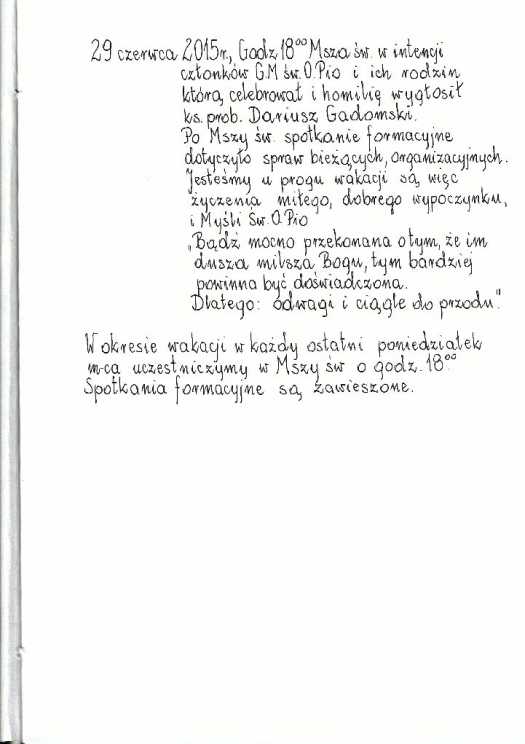 29 czerwca 2015r., Godz 18⁰⁰ Msza św. w intencji
członków G.M św. O. Pio i ich rodzin
którą celebrował i homilię wygłosił
ks. prob. Dariusz Gadomski.
Po Mszy św. spotkanie formacyjne
dotyczyło spraw bieżących, organizacyjnych.
Jesteśmy u progu wakacji są, więc
życzenia miłego, dobrego wypoczynku,
i Myśli Św. O. Pio
„Bądź mocno przekonana o tym, że im
dusza milsza Bogu, tym bardziej
powinna być doświadczona.
Dlatego: odwagi i ciągle do przodu".
W okresie wakacji w każdy ostatni poniedziałek
m-ca uczestniczymy w Mszy św o godz. 18⁰⁰
Spotkania formacyjne są zawieszone.